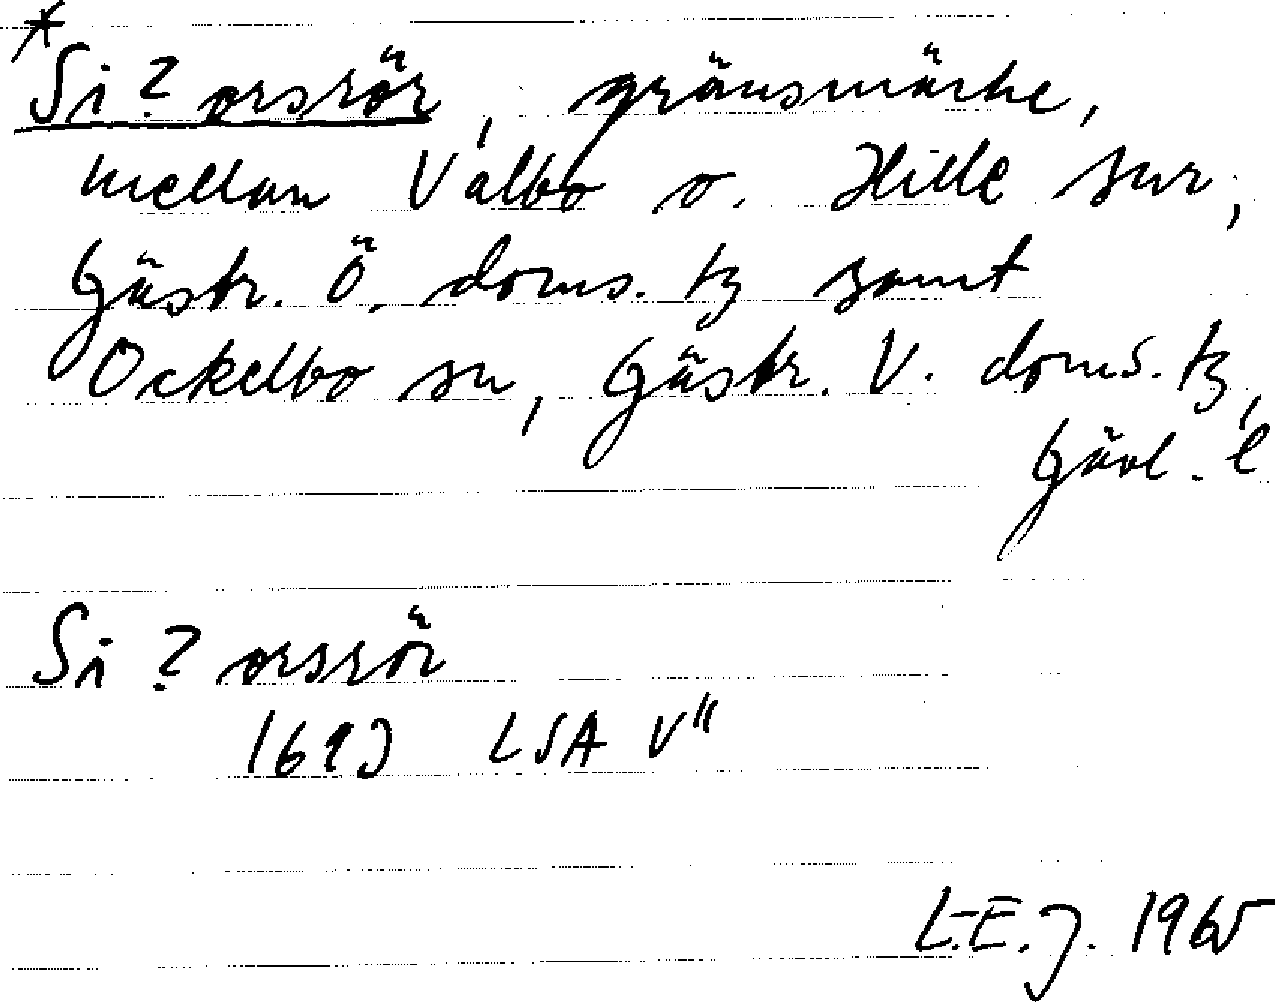 *Si ? orsrör, gränsmärke,
mellan Valbo o. Hille snr,
Gästr. Ö. doms. tg samt
Ockelbo sn, Gästr. V. doms. tg,
Gävl. l
Si ? orsrör
LSA V"
L.E.J. 1965